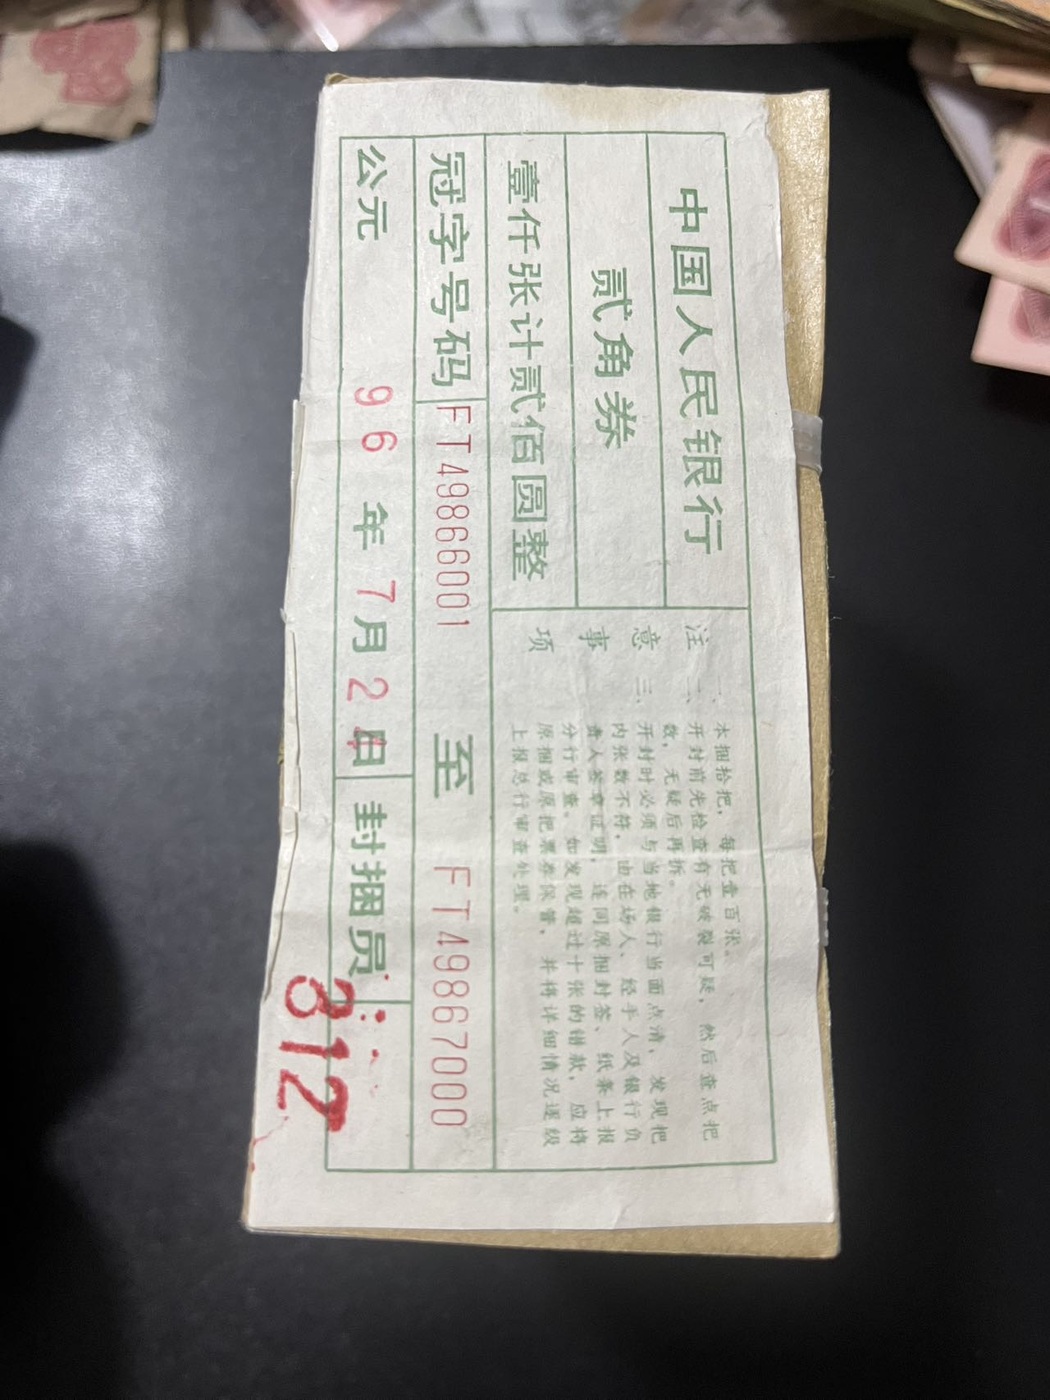 中国人民银行
贰角券
壹仟张计贰佰圆整
注意事项
一、本捆拾把，每把壹百张。
二、开封前先检查有无破裂可疑，然后查点把
数，无疑后再拆。
三、开封时必须与当地银行当面点清，发现把
内张数不符，由在场人、经手人及银行负
责人签章证明，连同原捆封签、纸条上报
分行审查。如发现超过十张的错款，应将
原捆或原把票券保管，并将详细情况逐级
上报总行审查处理。
冠字号码 FT49866001 至 FT49867000
公元 96 年 7月 24日 封捆员 812